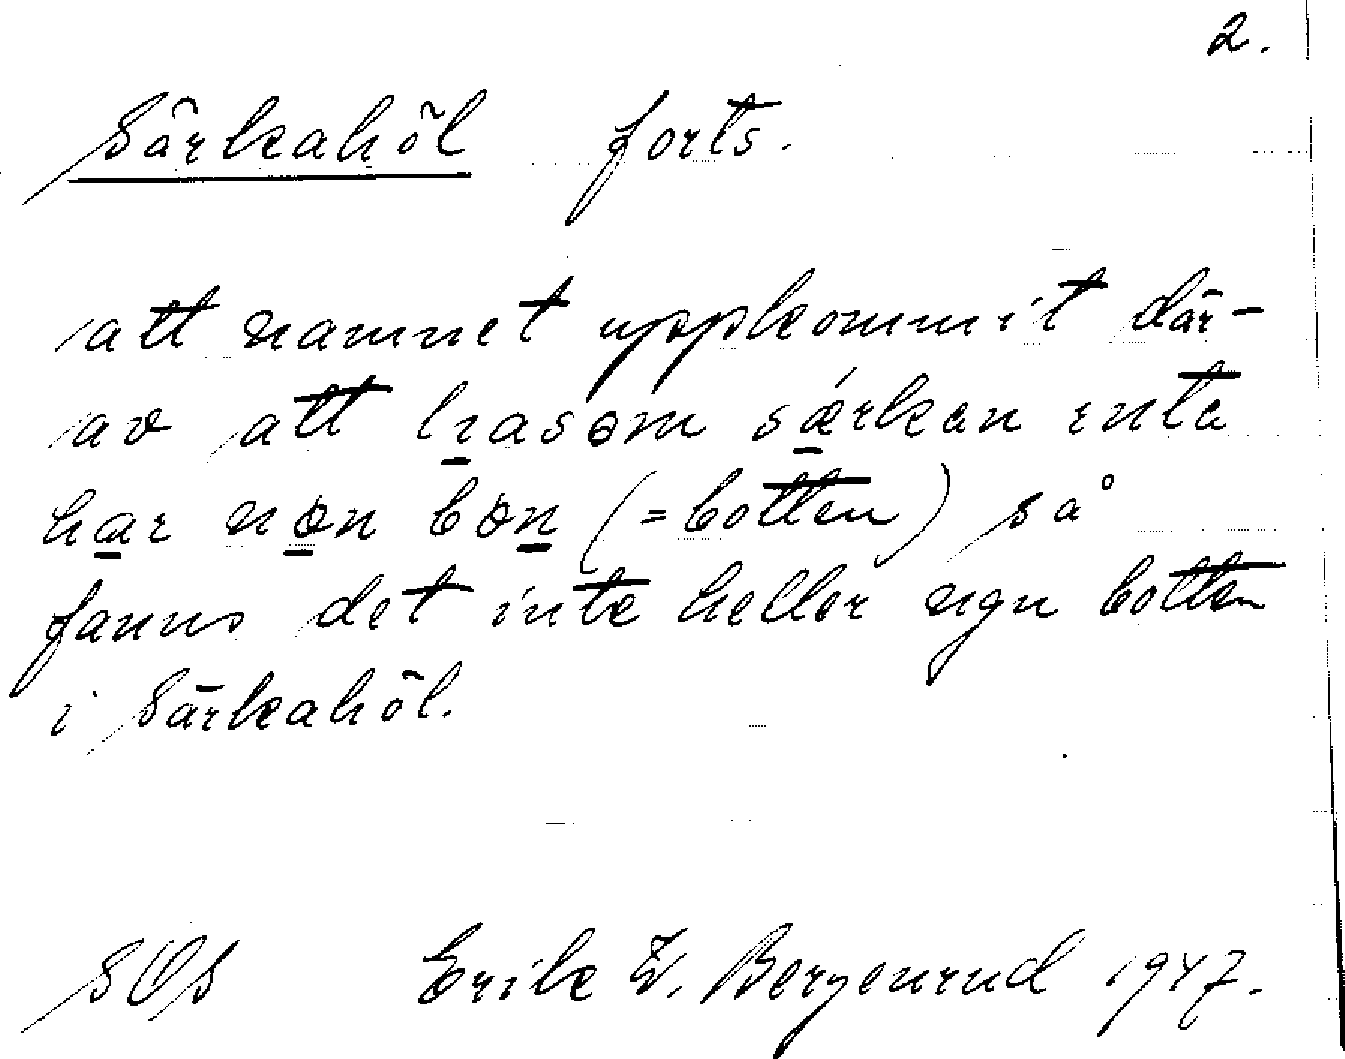 2.
Särkahöl forts.
att namnet uppkommit där-
av att liasom särken inte
har non bon (=botten) så
fanns det inte heller ngn botten
i Särkahöl.
SOS Erik W. Bergenrud 1947.